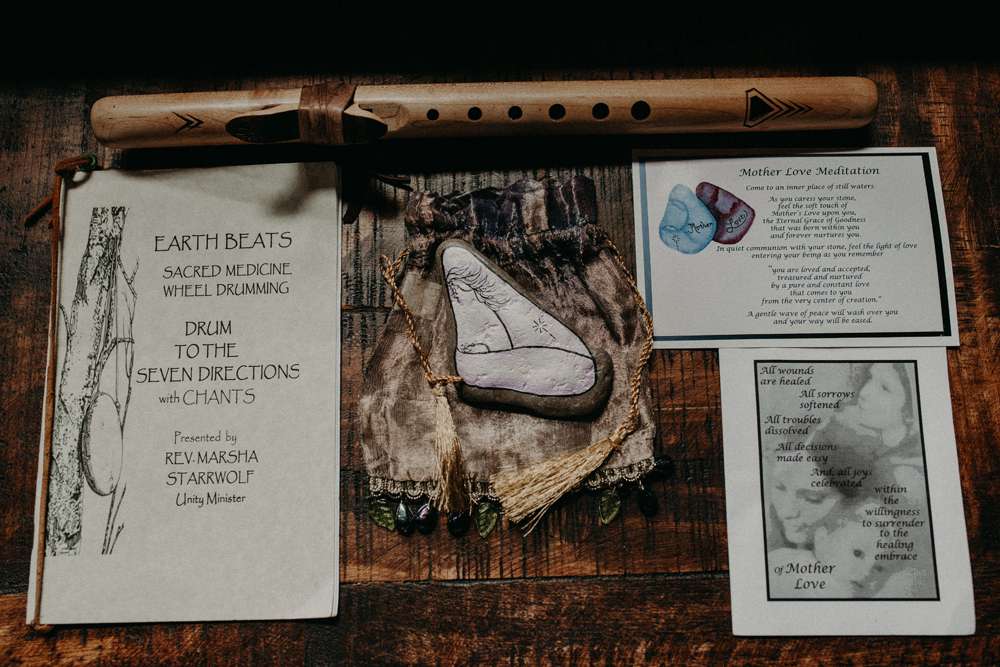 EARTH BEATS
SACRED MEDICINE
WHEEL DRUMMING
DRUM
TO THE
SEVEN DIRECTIONS
with CHANTS
Presented by
REV. MARSHA
STARRWOLF
Unity Minister
Mother Love Meditation
Come to an inner place of still waters
As you caress your stone,
feel the soft touch of
Mother's Love upon you,
the Eternal Grace of Goodness
that was born within you
and forever nurtures you.
In quiet communion with your stone, feel the light of love
entering your being as you remember
"you are loved and accepted,
treasured and nurtured
by a pure and constant love
that comes to you
from the very center of creation."
A gentle wave of peace will wash over you
and your way will be eased.
Mother
Love
All wounds
are healed
All sorrows
softened
All troubles
dissolved
All decisions
made easy
And, all joys
celebrated
within
the
willingness
to surrender
to the
healing
embrace
Of Mother
Love